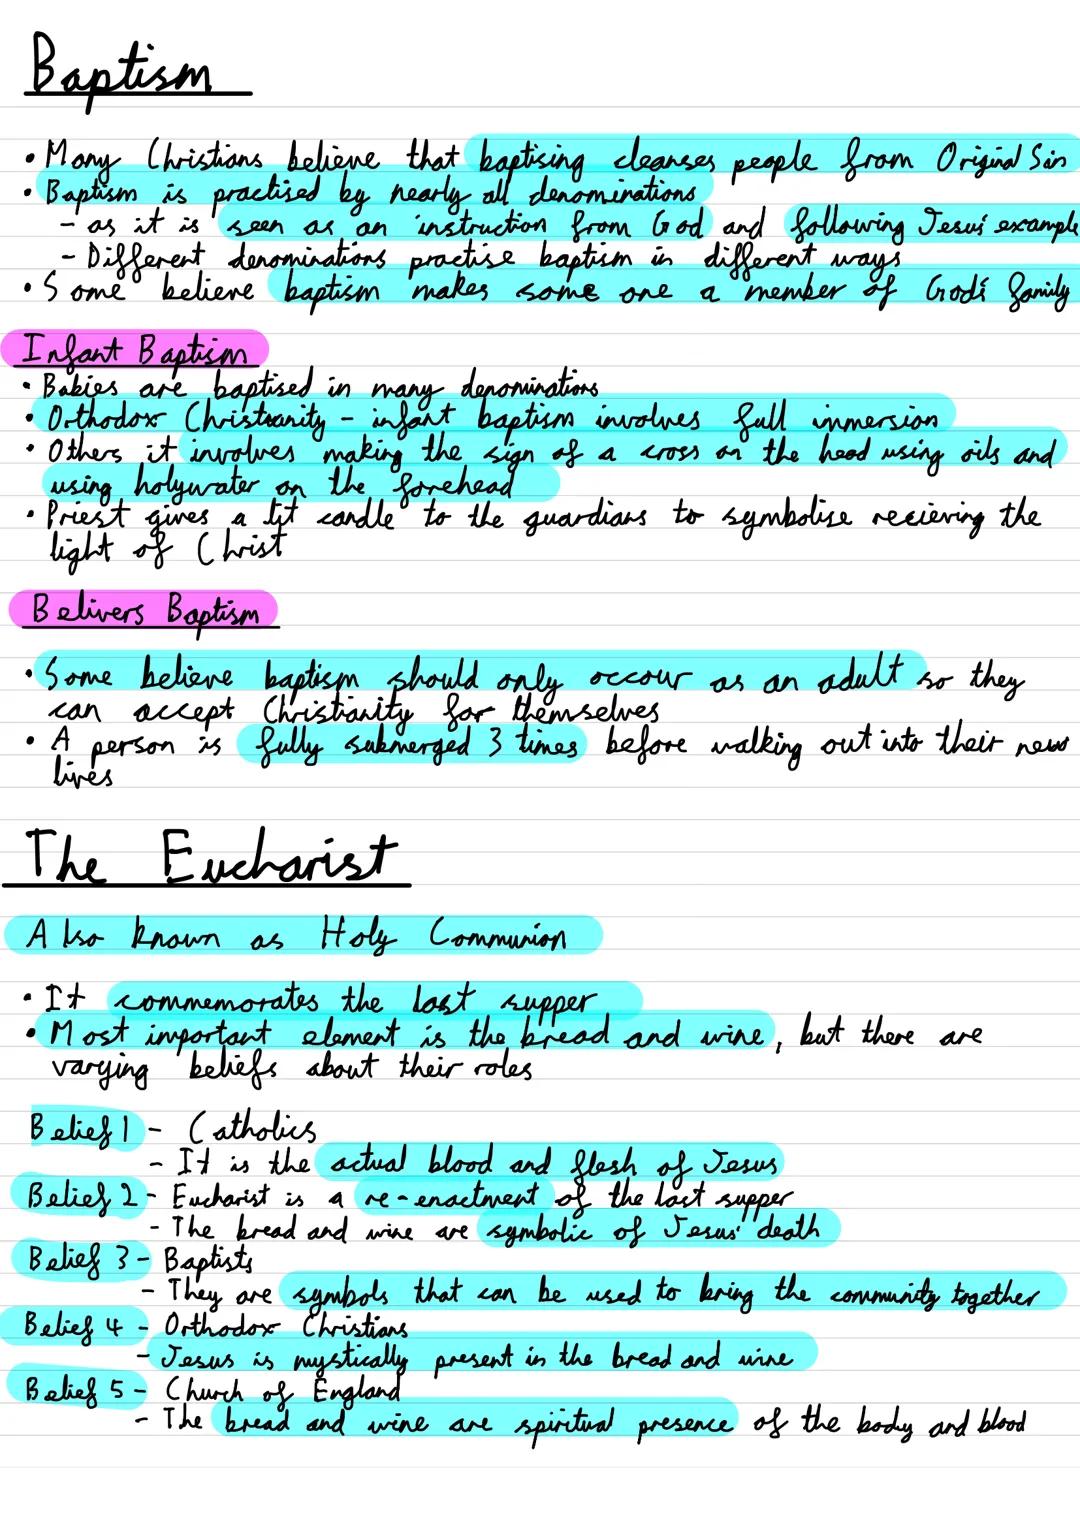 Baptism
• Many Christians believe that baptising cleanses people from Original Sin
• Baptism is practised by nearly all denominations
- as it is seen as an instruction from God and following Jesus' example
- Different denominations practise baptism in different ways
• Some believe baptism makes some one a member of God's family
Infant Baptism
• Babies are baptised in many denominations
• Orthodox Christianity - infant baptism involves full immersion
• Others it involves making the sign of a cross on the head using oils and
using holywater on the forehead
• Priest gives a lit candle to the guardians to symbolise recieving the
light of Christ
Belivers Baptism
• Some believe baptism should only occour as an adult so they
can accept Christianity for themselves
• A person is fully submerged 3 times before walking out into their new
lives
The Eucharist
Also known as Holy Communion
• It commemorates the last supper
• Most important element is the bread and wine, but there are
varying beliefs about their roles
Belief 1 - Catholics
- It is the actual blood and flesh of Jesus
Belief 2 - Eucharist is a re-enactment of the last supper
- The bread and wine are symbolic of Jesus' death
Belief 3 - Baptists
- They are symbols that can be used to bring the community together
Belief 4 - Orthodox Christians
- Jesus is mystically present in the bread and wine
Belief 5 - Church of England
- The bread and wine are spiritual presence of the body and blood